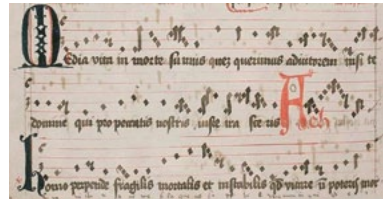 Media vita in morte sumus quez querimus adiutorem nisi te
domine qui pro peccatis nostris iuste ira sce ris Ach
homo perpende fragilis mortalis et instabilis qd vitare n̄ poteris mor